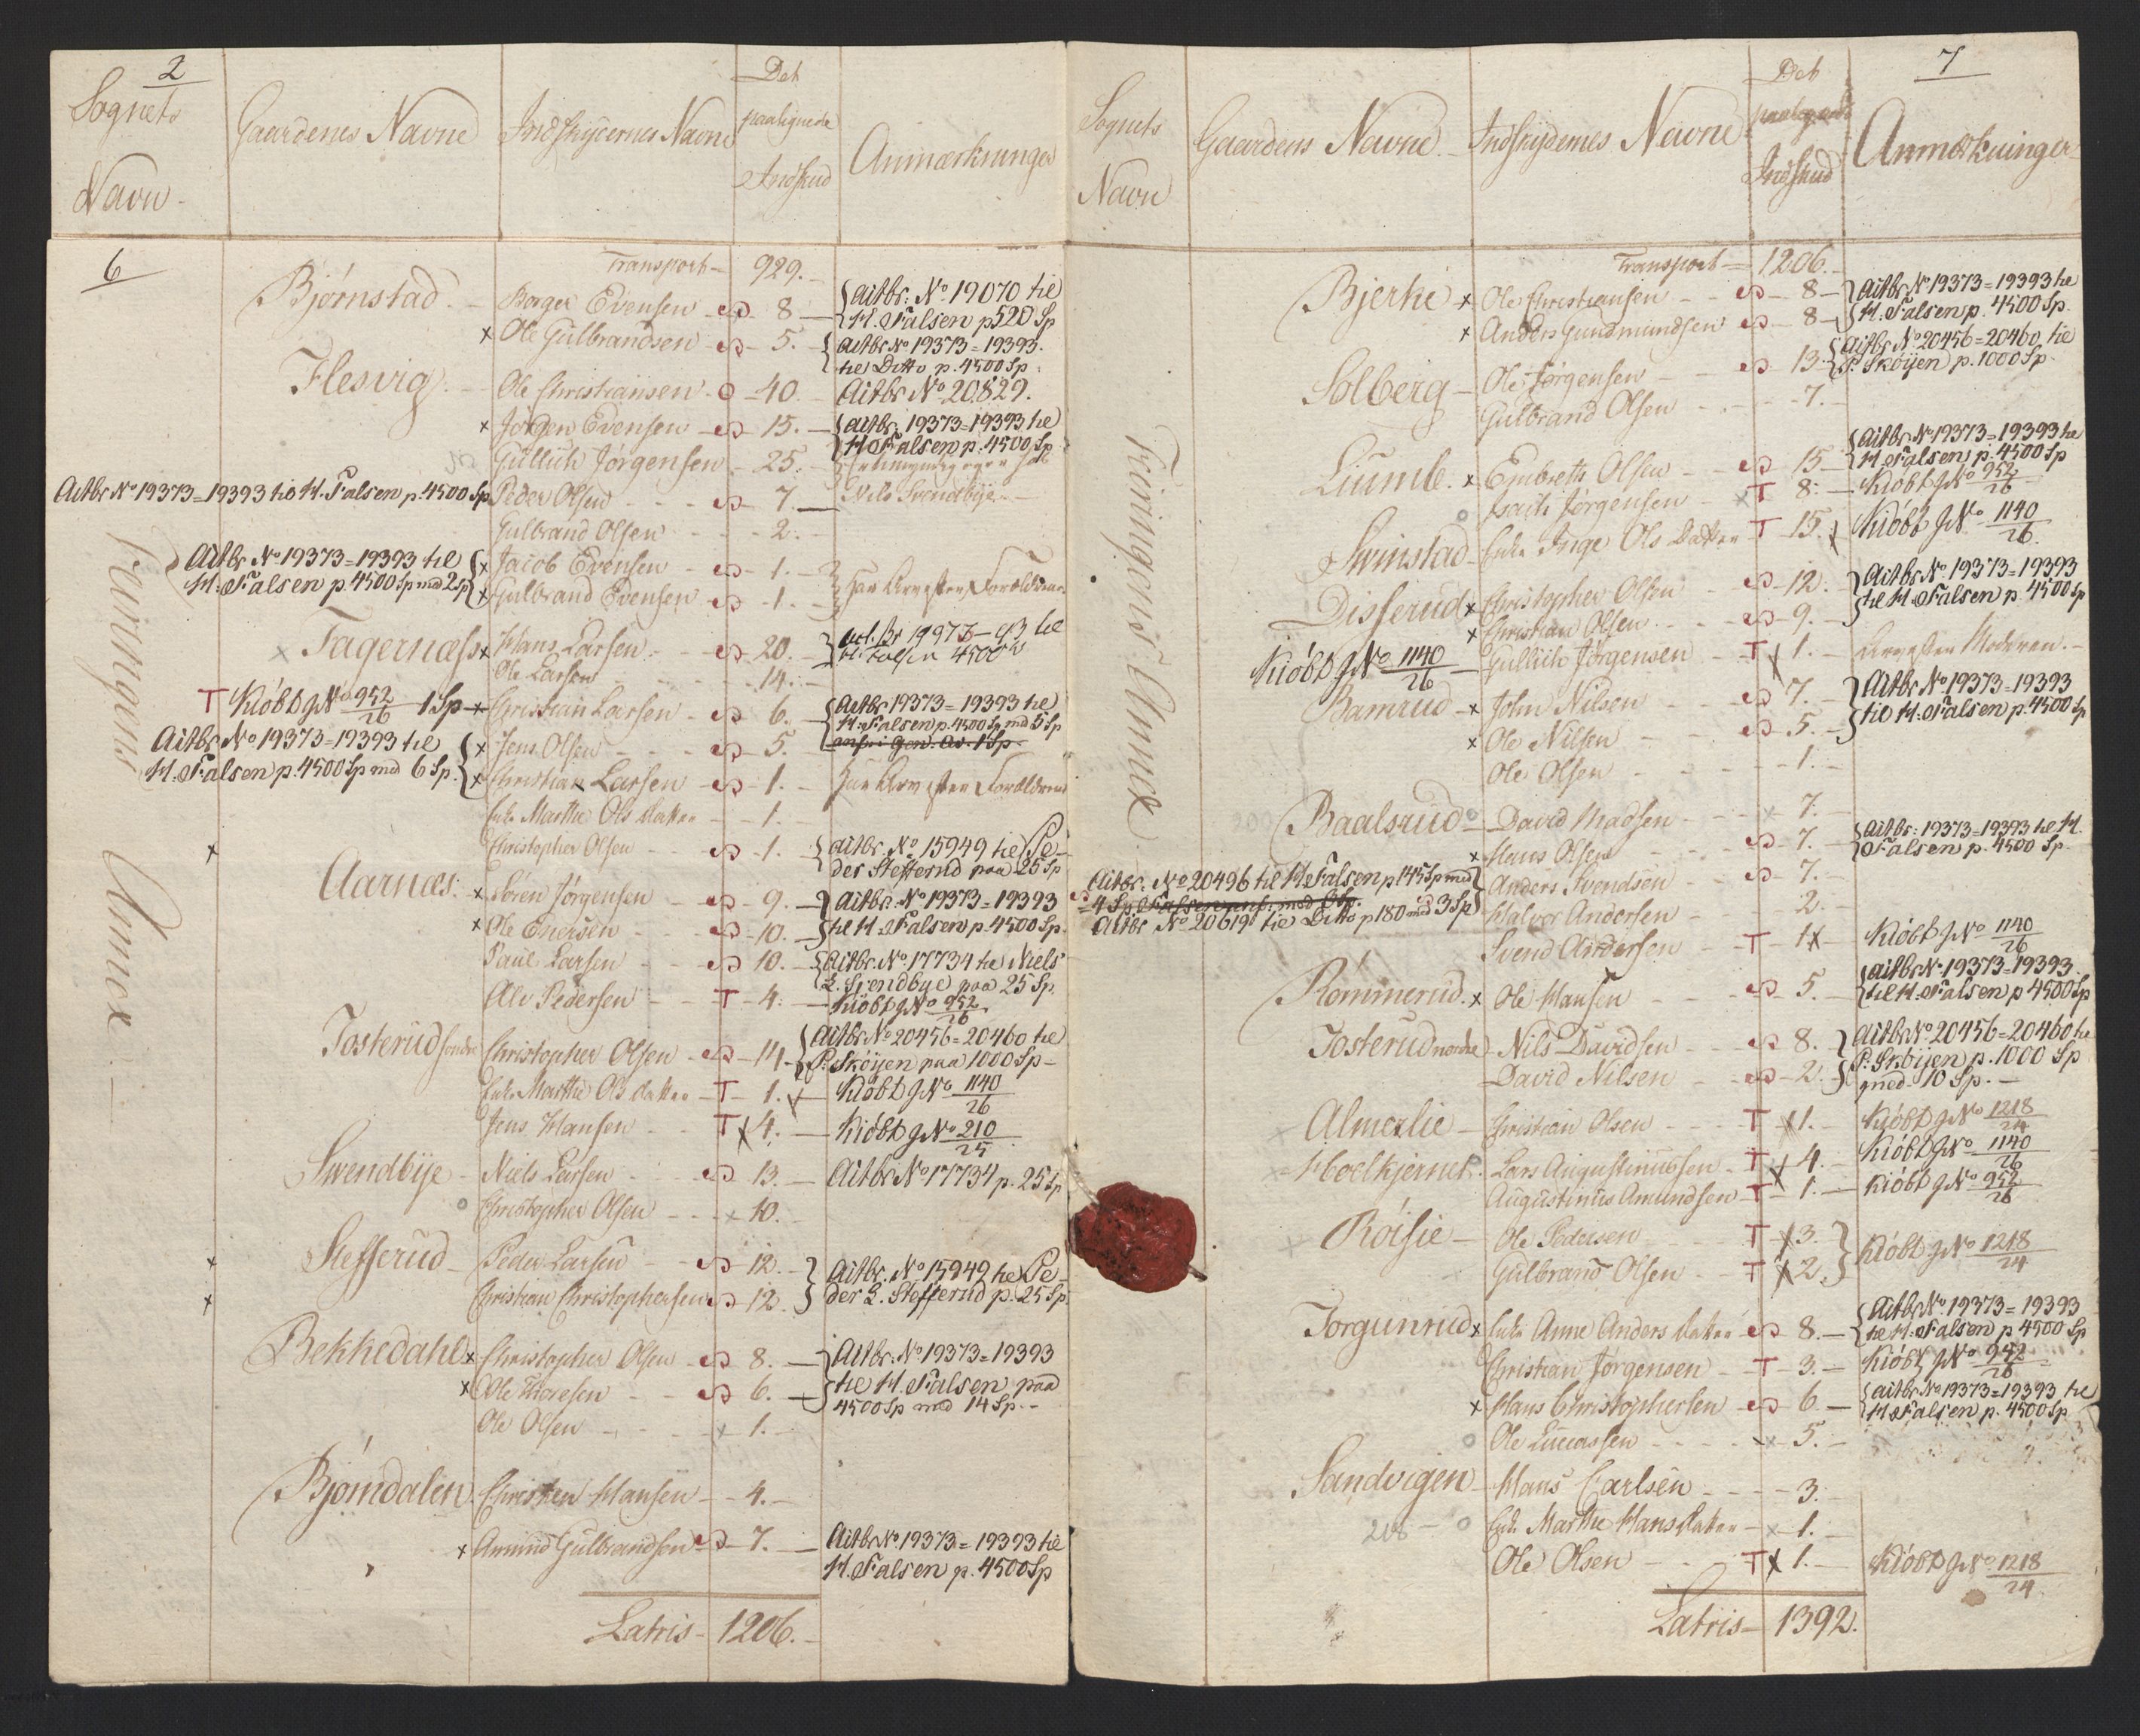 2
Sognets
Navn
Gaardenes Navne
Indskydernes Navne
Det
paalignede
Indskud
Anmærkninger
6
Feiringens Annex
Transport 929.
Bjørnstad. Borger Evensen 8 Actbr: No 19070 til
H. Falsen p 520 Sp
x Ole Gulbrandsen 5. Actbr No 19373=19393.
til Ditto p. 4500 Sp
Flesvig. Ole Christiansen 40. Actbr No 20829.
x Jørgen Evensen 15. Actbr 19373=19393 til
H Falsen p. 4500 Sp
Gullich Jørgensen 25.
Actbr No 19373=19393 til H. Falsen p. 4500 Sp Peder Olsen 7. Nils Svendbye
Gulbrand Olsen 2.
Actbr No 19373=19393 til x Jacob Evensen 1.
H. Falsen p. 4500 Sp med 2 Sp x Gulbrand Evensen 1. Forældrene
x Fagernæss x Hans Larsen 20. 4500
Ole Larsen 14.
T Kiöbt g No 952/26 1 Sp x Christian Larsen 6. Actbr 19373=19393 til
H. Falsen p. 4500 Sp med 5 Sp
Actbr No 19373=19393 til x Jens Olsen 5.
H. Falsen p. 4500 Sp med 6 Sp. x Christian Larsen 1. Forældrene
Enke Marthe Ols Datter 1.
x Christopher Olsen 1. Actbr. No 15949 til Pe-
der Stefferud paa 25 Sp
Aarnæs. x Søren Jørgensen 9. Actbr. No 19373=19393
x Ole Enersen 10. til H. Falsen p. 4500 Sp.
Paul Larsen 10. Actbr. No 17734 til Niels
L. Svendbye paa 25 Sp.
Ole Pedersen T 4. Kiöbt g No 952/26
Josterud søndre Christopher Olsen 14 Actbr No 20456=20460 til
P. Sköijen paa 1000 Sp
Enke Marthe Ols Datter T 1. Kiöbt g No 1140/26
Jens Hansen T x 4. Kiöbt g No 210/25
Svendbye Niels Larsen 13. Actbr No 17734 p. 25 Sp
Christopher Olsen x 10.
x Stefferud Peder Larsen 12. Actbr. No 15949 til Pe-
x Christian Christophersen 12. der L. Stefferud p. 25 Sp.
Bekkedahl x Christopher Olsen 8. Actbr. No 19373=19393
x Ole Thoresen 6. til H. Falsen paa
4500 Sp med 14 Sp.
Ole Olsen x 1.
Bjørndalen Christen Hansen 4.
x Amund Gulbrandsen 7. Actbr No 19373=19393 til
H. Falsen p. 4500 Sp
Latris 1206.
7
Sognets
Navn
Gaardens Navne
Indskydernes Navne
Det
paalignede
Indskud
Anmærkninger
Feiringens Annex
Transport 1206.
Bjerke x Ole Christiansen 8 Actbr No 19373=19393 til
x Anders Gundmundsen 8 H. Falsen p. 4500 Sp.
Solberg Ole Jørgensen 13. Actbr No 20456=20460 til
P. Sköijen p. 1000 Sp.
Gulbrand Olsen 7.
Liumb. x Embreth Olsen 15 Actbr No 19373=19393 til
H. Falsen p. 4500 Sp
Jørgensen x T 8. Kiöbt g No 952/26
Svinstad Enke Inge Ols Datter T 15. Kiöbt g No 1140/26.
Disserud x Christopher Olsen 12. Actbr No 19373=19393
x Christian Olsen 9. til H. Falsen p. 4500 Sp
Kiöbt g No 1140/26 Gullich Jørgensen T x 1. Moderen.
Bamrud x John Nilsen 7. Actbr No 19373=19393
x Ole Nilsen 5. til H. Falsen p. 4500 Sp
Ole Olsen 1.
Baalsrud David Madsen x 7.
x Hans Olsen 7. Actbr: 19373=19393 til H.
Falsen p. 4500 Sp.
Actbr. No 20496 til H. Falsen p 145 Sp med Anders Svendsen 7.
4 Sp. Halvor Andersen 2.
Actbr No 20619 til Ditto p 180 med 3 Sp
Svend Andersen T 1 x Kiöbt g No 1140/26
Rommerud. x Ole Hansen 5. Actbr No 19373=19393
til H. Falsen p 4500 Sp
Josterud nordre Nils Davidsen 8. Actbr No 20456=20460 til
P. Sköijen p. 1000 Sp
David Nilsen 2. med 10 Sp.
Almerlie Christian Olsen T x 1. Kiöbt g No 1218/24
Hoelkjernet. Lars Augustinussen T x 4. Kiöbt g No 1140/26
Augustinus Amundsen T 1. Kiöbt g No 952/26
Röisie Ole Pedersen T x 3. Kiöbt g No 1218/24
Gulbrand Olsen T x 2.
Jorgunrud x Enke Anne Anders Datter 8. Actbr No 19373=19393
til H. Falsen p 4500 Sp
Christian Jørgensen T 3. Kiöbt g No 952/26
x Hans Christophersen 6 Actbr No 19373=19393 til
H Falsen p. 4500 Sp
Ole Lucassen x 5.
Sandvigen Hans Carlsen 3.
Enke Marthe Hans Datter x 1.
Ole Olsen T x 1. Kiöbt g No 1218/24.
Latris 1392.